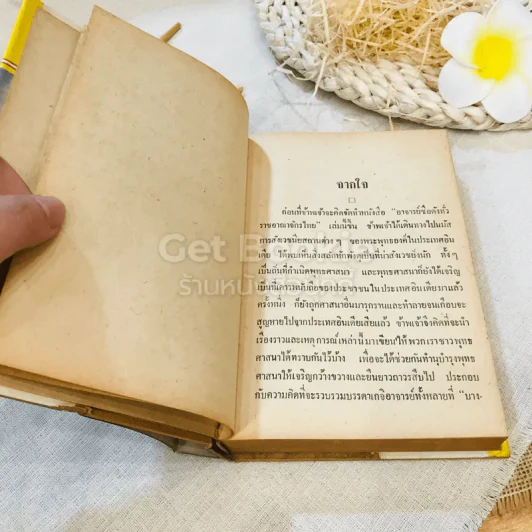 จากใจ
ก่อนที่ข้าพเจ้าจะคิดจัดทำหนังสือ "อาจารย์ชื่อดังทั่ว
ราชอาณาจักรไทย" เล่มนี้ขึ้น ข้าพเจ้าได้เดินทางไปนมัส
การสังเวชนียสถานต่าง ๆ ของพระพุทธองค์ในประเทศอิน
เดีย ได้พบเห็นสิ่งสลักหักพังดูเป็นที่น่าสังเวชยิ่งนัก ทั้ง ๆ
เป็นถิ่นที่กำเนิดพุทธศาสนา และพุทธศาสนาก็ยังได้เจริญ
เป็นที่นับถือของประชาชนในประเทศอินเดียมาแล้ว
ครั้งหนึ่ง ก็ยังถูกศาสนาอื่นมารุกรานและทำลายจนเกือบจะ
สูญหายไปจากประเทศอินเดียเสียแล้ว ข้าพเจ้าจึงคิดที่จะนำ
เรื่องราวและเหตุการณ์เหล่านี้มาเขียนให้พวกเราชาวพุทธ
ศาสนาได้ทราบกันไว้บ้าง เพื่อจะได้ช่วยกันทำนุบำรุงพุทธ
ศาสนาให้เจริญกว้างขวางและยืนยาวถาวรสืบไป ประกอบ
กับความคิดที่จะรวบรวมบรรดาเกจิอาจารย์ทั้งหลายที่ "บาง-
Get Bookie